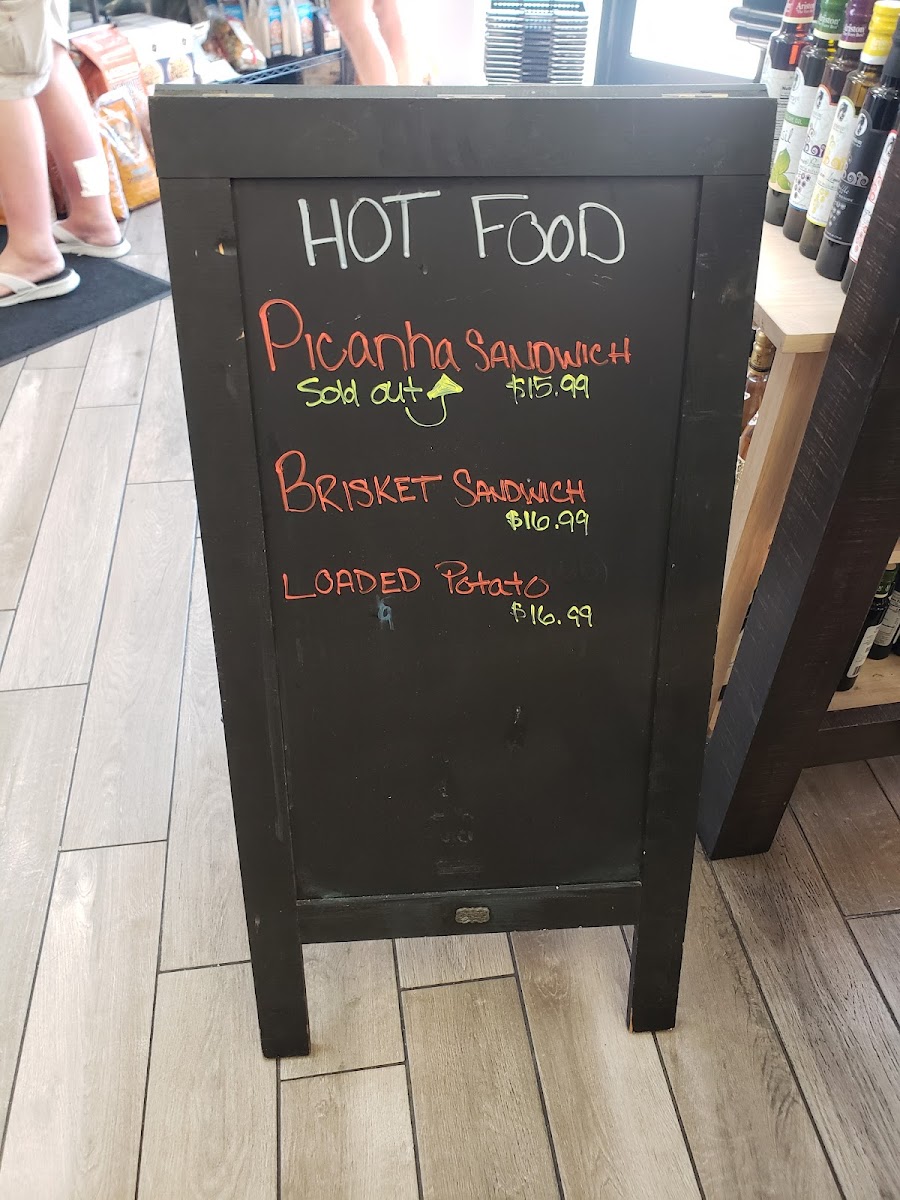 HOT FOOD
Picanha SANDWICH
Sold out $15.99
BRISKET SANDWICH
$16.99
LOADED Potato
$16.99